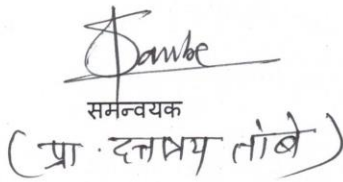 Dambe
समन्वयक
( प्रा . दत्तात्रय तांबे )